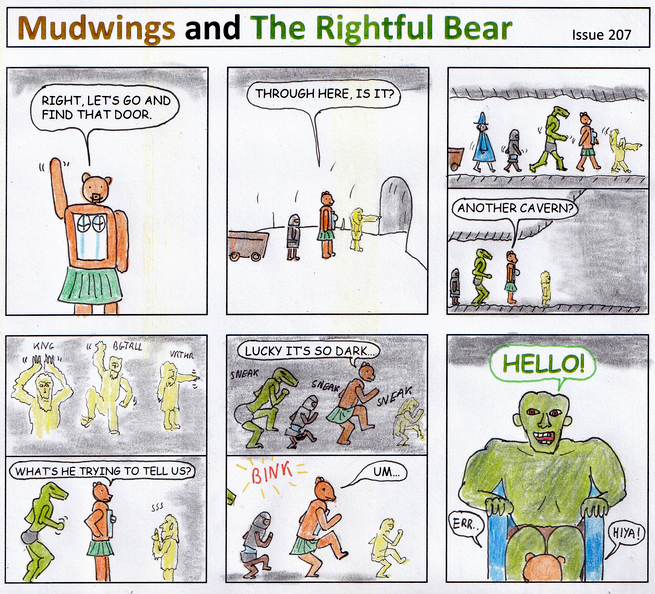 Mudwings and The Rightful Bear
Issue 207
RIGHT, LET'S GO AND
FIND THAT DOOR.
THROUGH HERE, IS IT?
ANOTHER CAVERN?
KNG
BGTRLL
VRTHR
WHAT'S HE TRYING TO TELL US?
SSS
LUCKY IT'S SO DARK...
SNEAK
SNEAK
SNEAK
BINK
UM...
HELLO!
ERR..
HIYA!